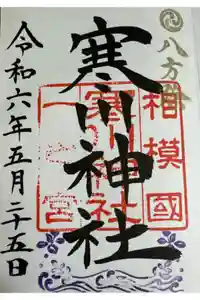 八方除
相模國
寒川神社
寒川神社
一之宮
令和六年五月二十五日